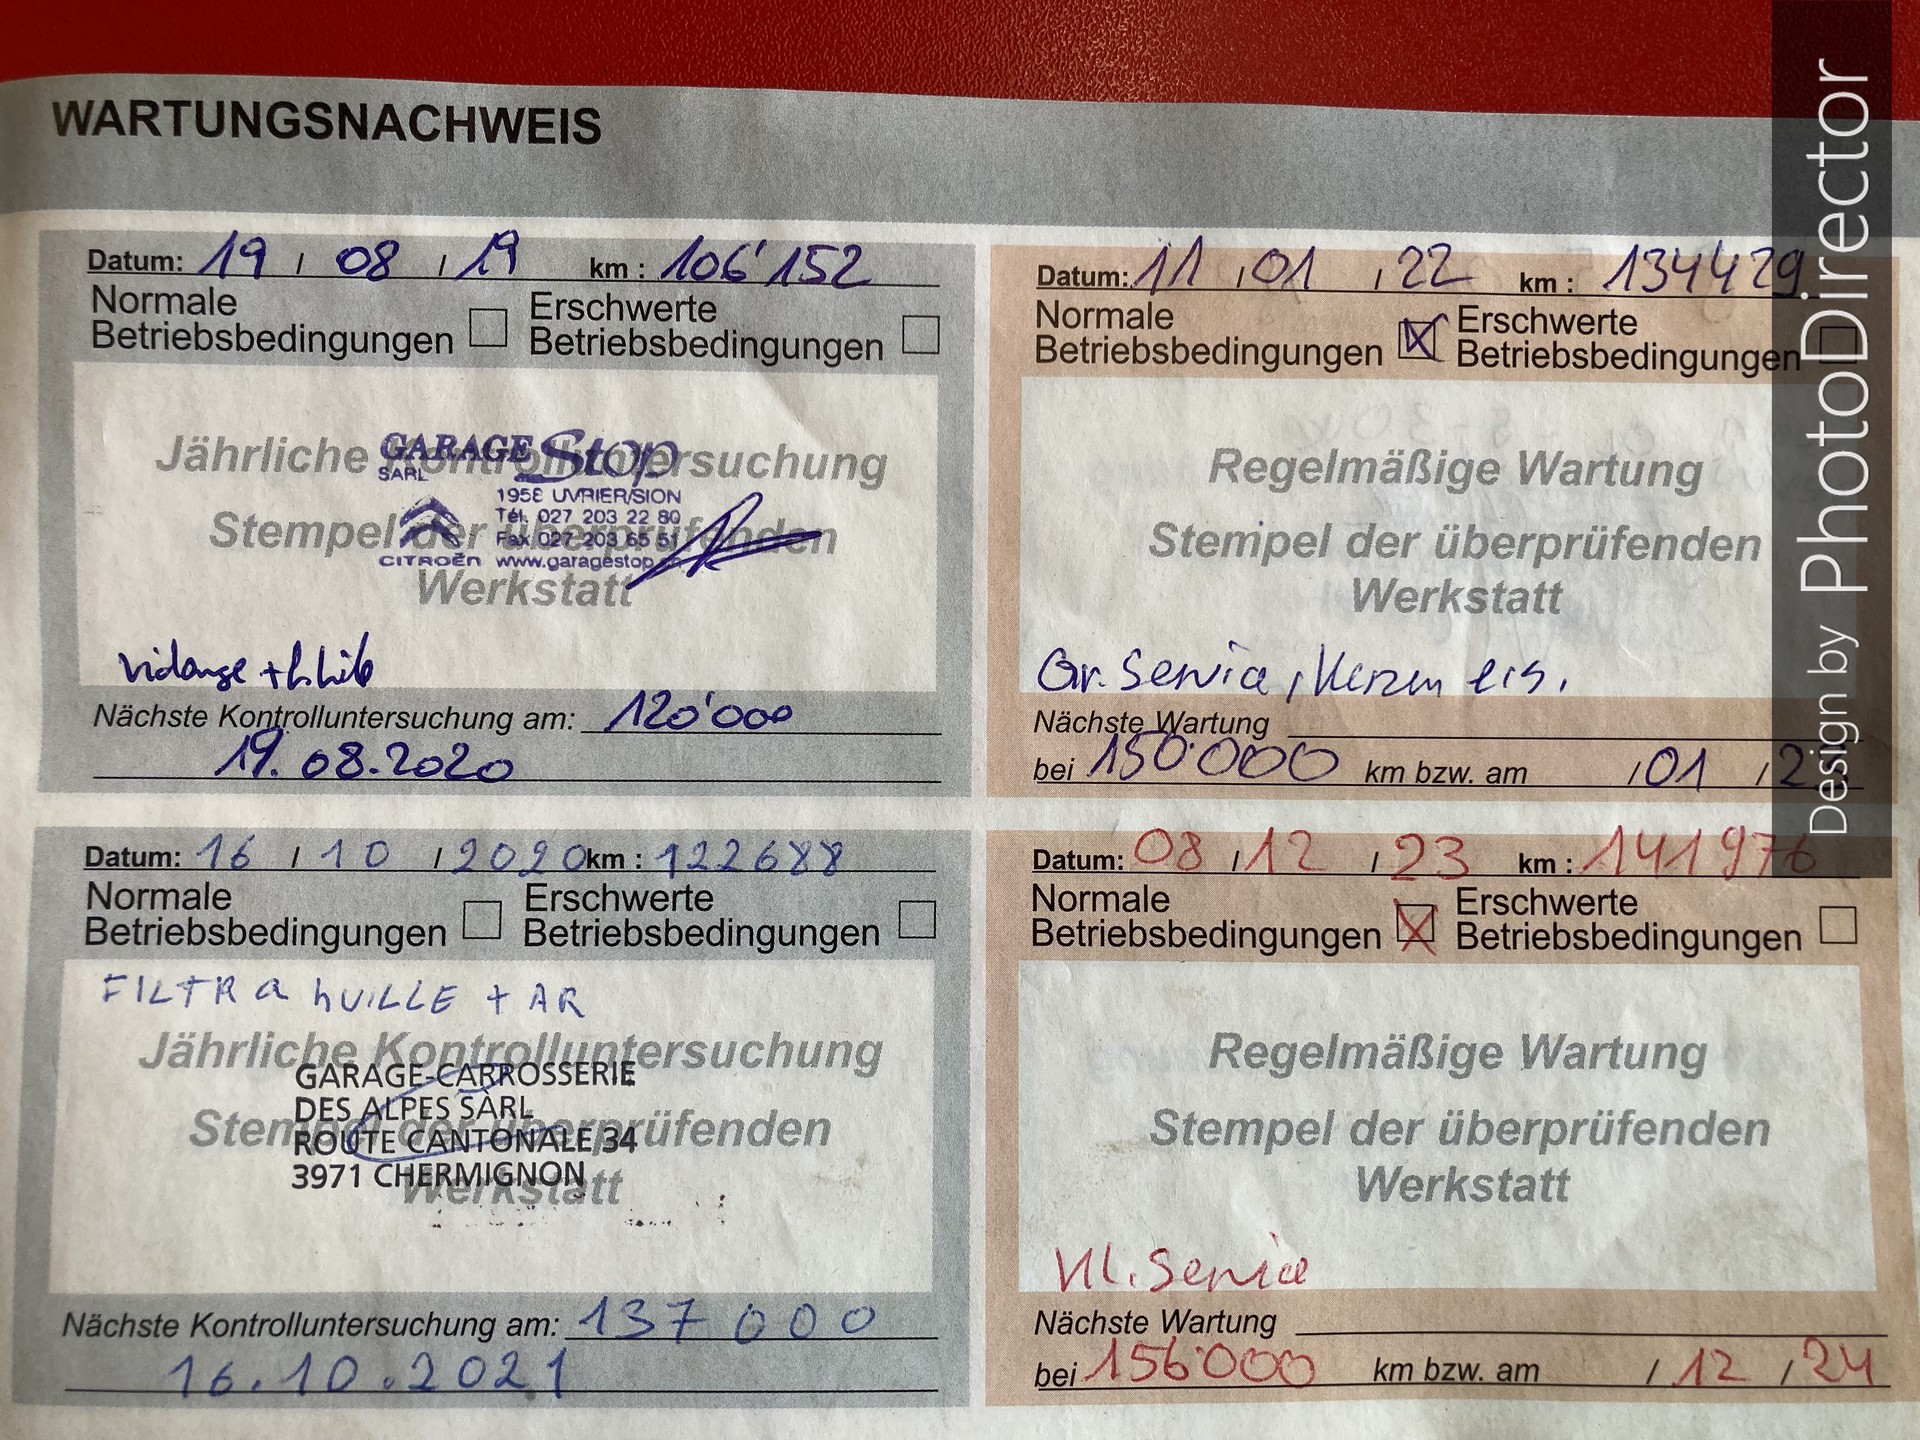 WARTUNGSNACHWEIS
Datum: 19 / 08 / 19 km : 106'152
Normale
Betriebsbedingungen
Erschwerte
Betriebsbedingungen
Jährliche Kontrolluntersuchung
Stempel der überprüfenden
Werkstatt
GARAGE Stop
SARL
1958 UVRIER/SION
Tél. 027 203 22 80
Fax 027 203 65 51
CITROËN www.garagestop
vidange +
Nächste Kontrolluntersuchung am: 120'000
19.08.2020
Datum: 16 / 10 / 2020 km : 122688
Normale
Betriebsbedingungen
Erschwerte
Betriebsbedingungen
FILTR a hUILLE + AR
Jährliche Kontrolluntersuchung
Stempel der überprüfenden
Werkstatt
GARAGE-CARROSSERIE
DES ALPES SARL
ROUTE CANTONALE 34
3971 CHERMIGNON
Nächste Kontrolluntersuchung am: 137 000
16.10.2021
Datum: 11 / 01 / 22 km : 134429
Normale
Betriebsbedingungen
Erschwerte
Betriebsbedingungen
Regelmäßige Wartung
Stempel der überprüfenden
Werkstatt
Gr. Service, Kerzen ers.
Nächste Wartung
bei 150'000 km bzw. am / 01 / 2
Datum: 08 / 12 / 23 km : 141976
Normale
Betriebsbedingungen
Erschwerte
Betriebsbedingungen
Regelmäßige Wartung
Stempel der überprüfenden
Werkstatt
Kl. Service
Nächste Wartung
bei 156'000 km bzw. am / 12 / 24
Design by PhotoDirector